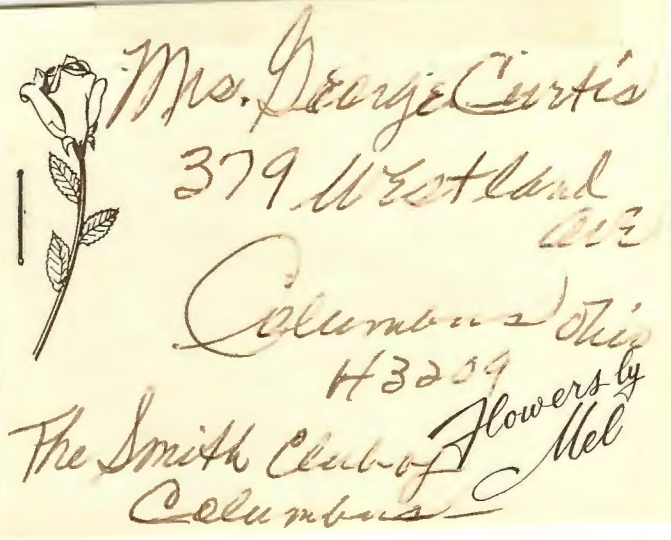 Mrs. George Curtis
379 Westland
Ave
Columbus Ohio
43209
The Smith Club of
Columbus
Flowers by
Mel